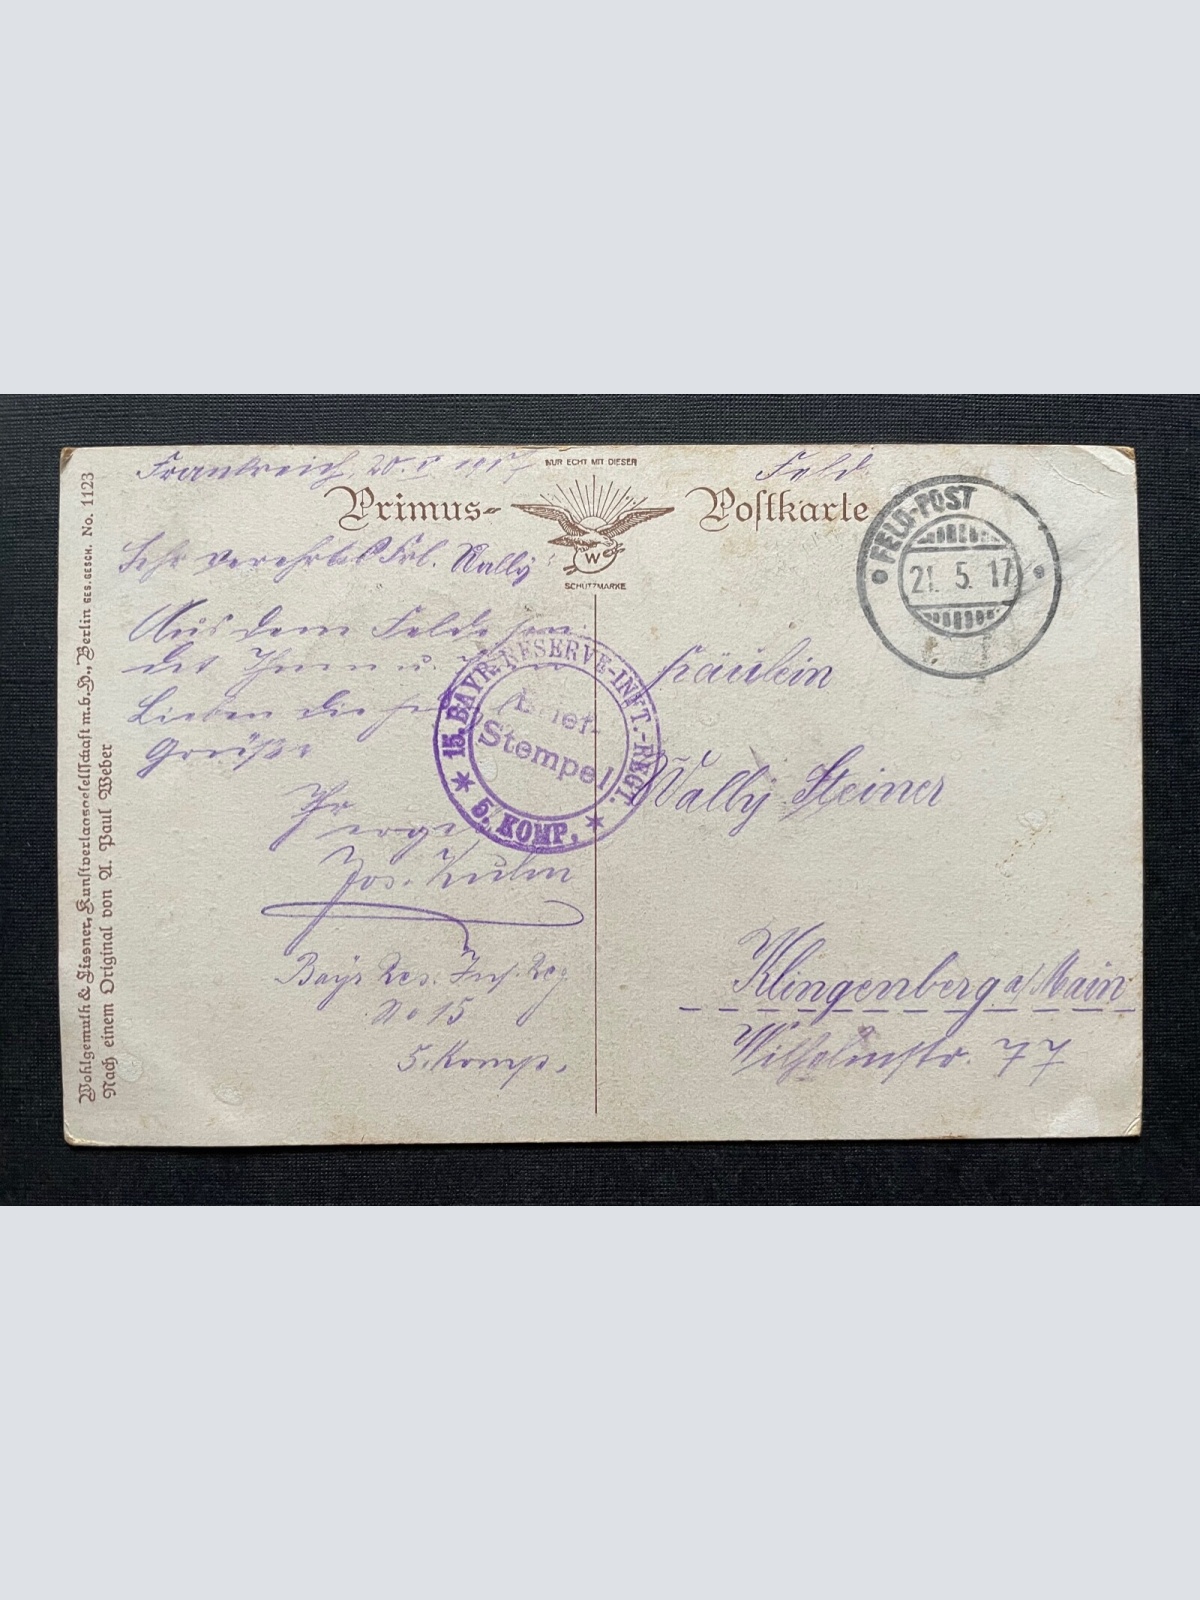 Frankreich 20. V. 1917
Feld
NUR ECHT MIT DIESER
Primus- Postkarte
W
SCHUTZMARKE
FELD-POST
21. 5. 17
Sehr verehrtes Frl. Wally
Aus dem Felde sen-
det Ihnen u. Ihren
Lieben die
Grüße
Ihr
Jos. Kulm
Bayr Res. Inf. Reg
No 15
5. Komp.
15. BAYR. RESERVE-INFT.-REGT.
Brief-
Stempel
5. KOMP.
Fräulein
Wally Steiner
Klingenberg a/Main
Wilhelmstr. 77
Wohlgemuth & Lissner, Kunstverlagsgesellschaft m.b.H., Berlin GES.GESCH. No. 1123
Nach einem Original von A. Paul Weber